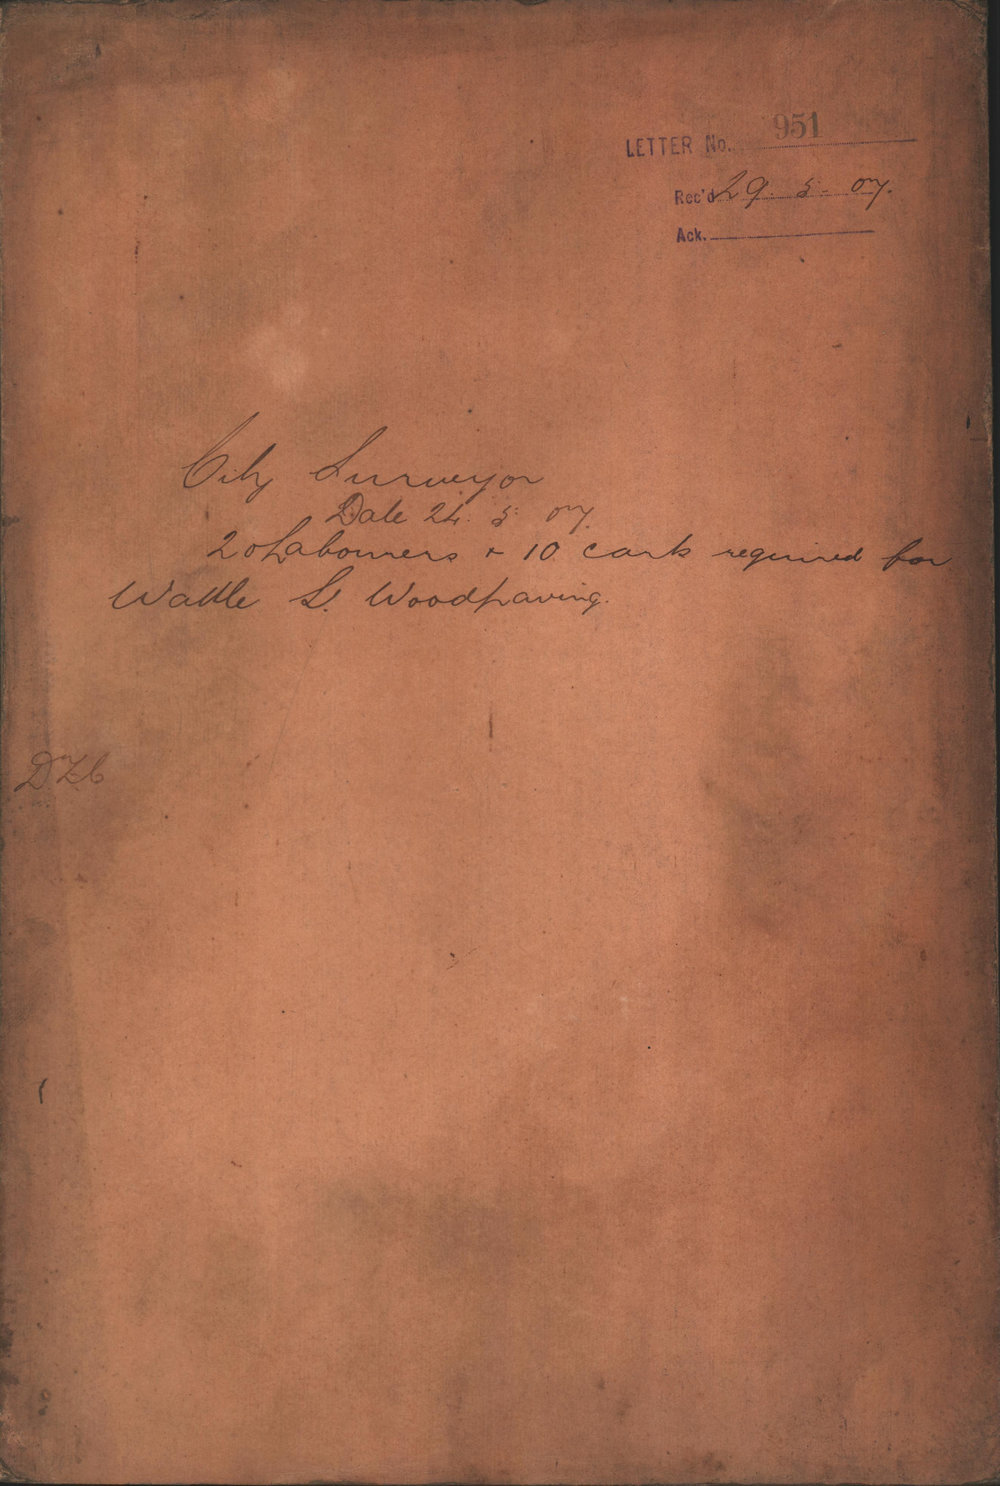 LETTER No. 951
Rec'd 29. 5. 07.
Ack.
City Surveyor
Date 24. 5. 07.
20 Labourers + 10 carts required for
Wattle St. Woodpaving.